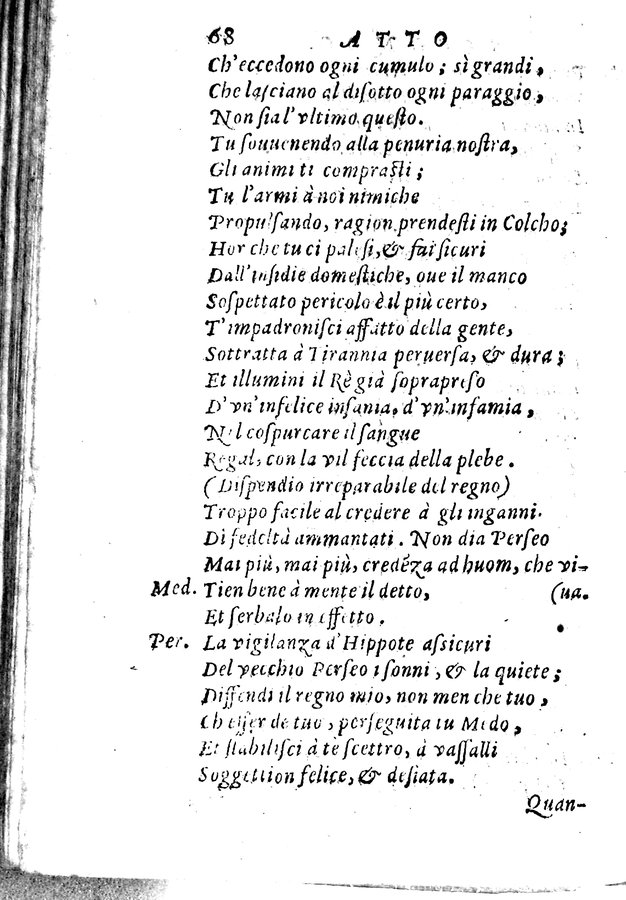 68 ATTO
Ch'eccedono ogni cumulo; sì grandi,
Che lasciano al disotto ogni paraggio,
Non sia l'vltimo questo.
Tu souuenendo alla penuria nostra,
Gli animi ti comprasti;
Tu l'armi à noi nimiche
Propulsando, ragion prendesti in Colcho;
Hor che tu ci palesi, & fai sicuri
Dall'insidie domestiche, oue il manco
Sospettato pericolo è il più certo,
T'impadronisci affatto della gente,
Sottratta à Tirannia peruersa, & dura;
Et illumini il Rè già soprapreso
D'vn'infelice insania, d'vn'infamia,
Nel cospurcare il sangue
Regal, con la vil feccia della plebe.
(Dispendio irreparabile del regno)
Troppo facile al credere à gli inganni
Di fedeltà ammantati. Non dia Perseo
Mai più, mai più, credẽza ad huom, che vi-
Med. Tien bene à mente il detto, (ua.
Et serbalo in effetto.
Per. La vigilanza d'Hippote assicuri
Del vecchio Perseo i sonni, & la quiete;
Diffendi il regno mio, non men che tuo,
Ch'esser de tuo, perseguita tu Medo,
Et stabilisci à te scettro, à vassalli
Soggettion felice, & desiata.
Quan-